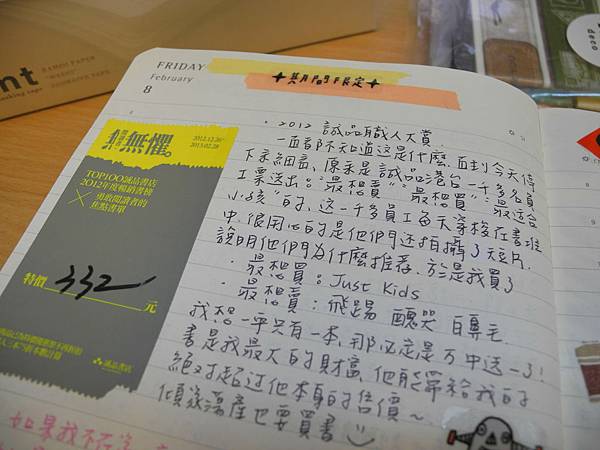 FRIDAY
February
8
期間限定
2012 誠品職人大賞
一直都不知道這是什麼,直到今天停
下來細看,原來是誠品港台一千多名員
工票選出。"最想賣""最想買""最適合
小孩"的,這一千多員工每天穿梭在書堆
中,很用心的是他們还拍攝了短片,
說明他們為什麼推荐,於是我買了
最想買:Just Kids
最想賣:飛踢,醜哭,白鼻毛
我想一年只有一本,那必定是万中选一了!
書是我最大的財富,他能帶給我的
絕对超过他本身的售價~
傾家蕩產也要買書
無懼。
2012.12.26-
2013.02.28
TOP100誠品書店
2012年度暢銷書榜
×
勇敢閱讀者的
焦點書單
特價 332 元
誠品書店
如果我不在
RAMDI PAPER
nt
masking tape